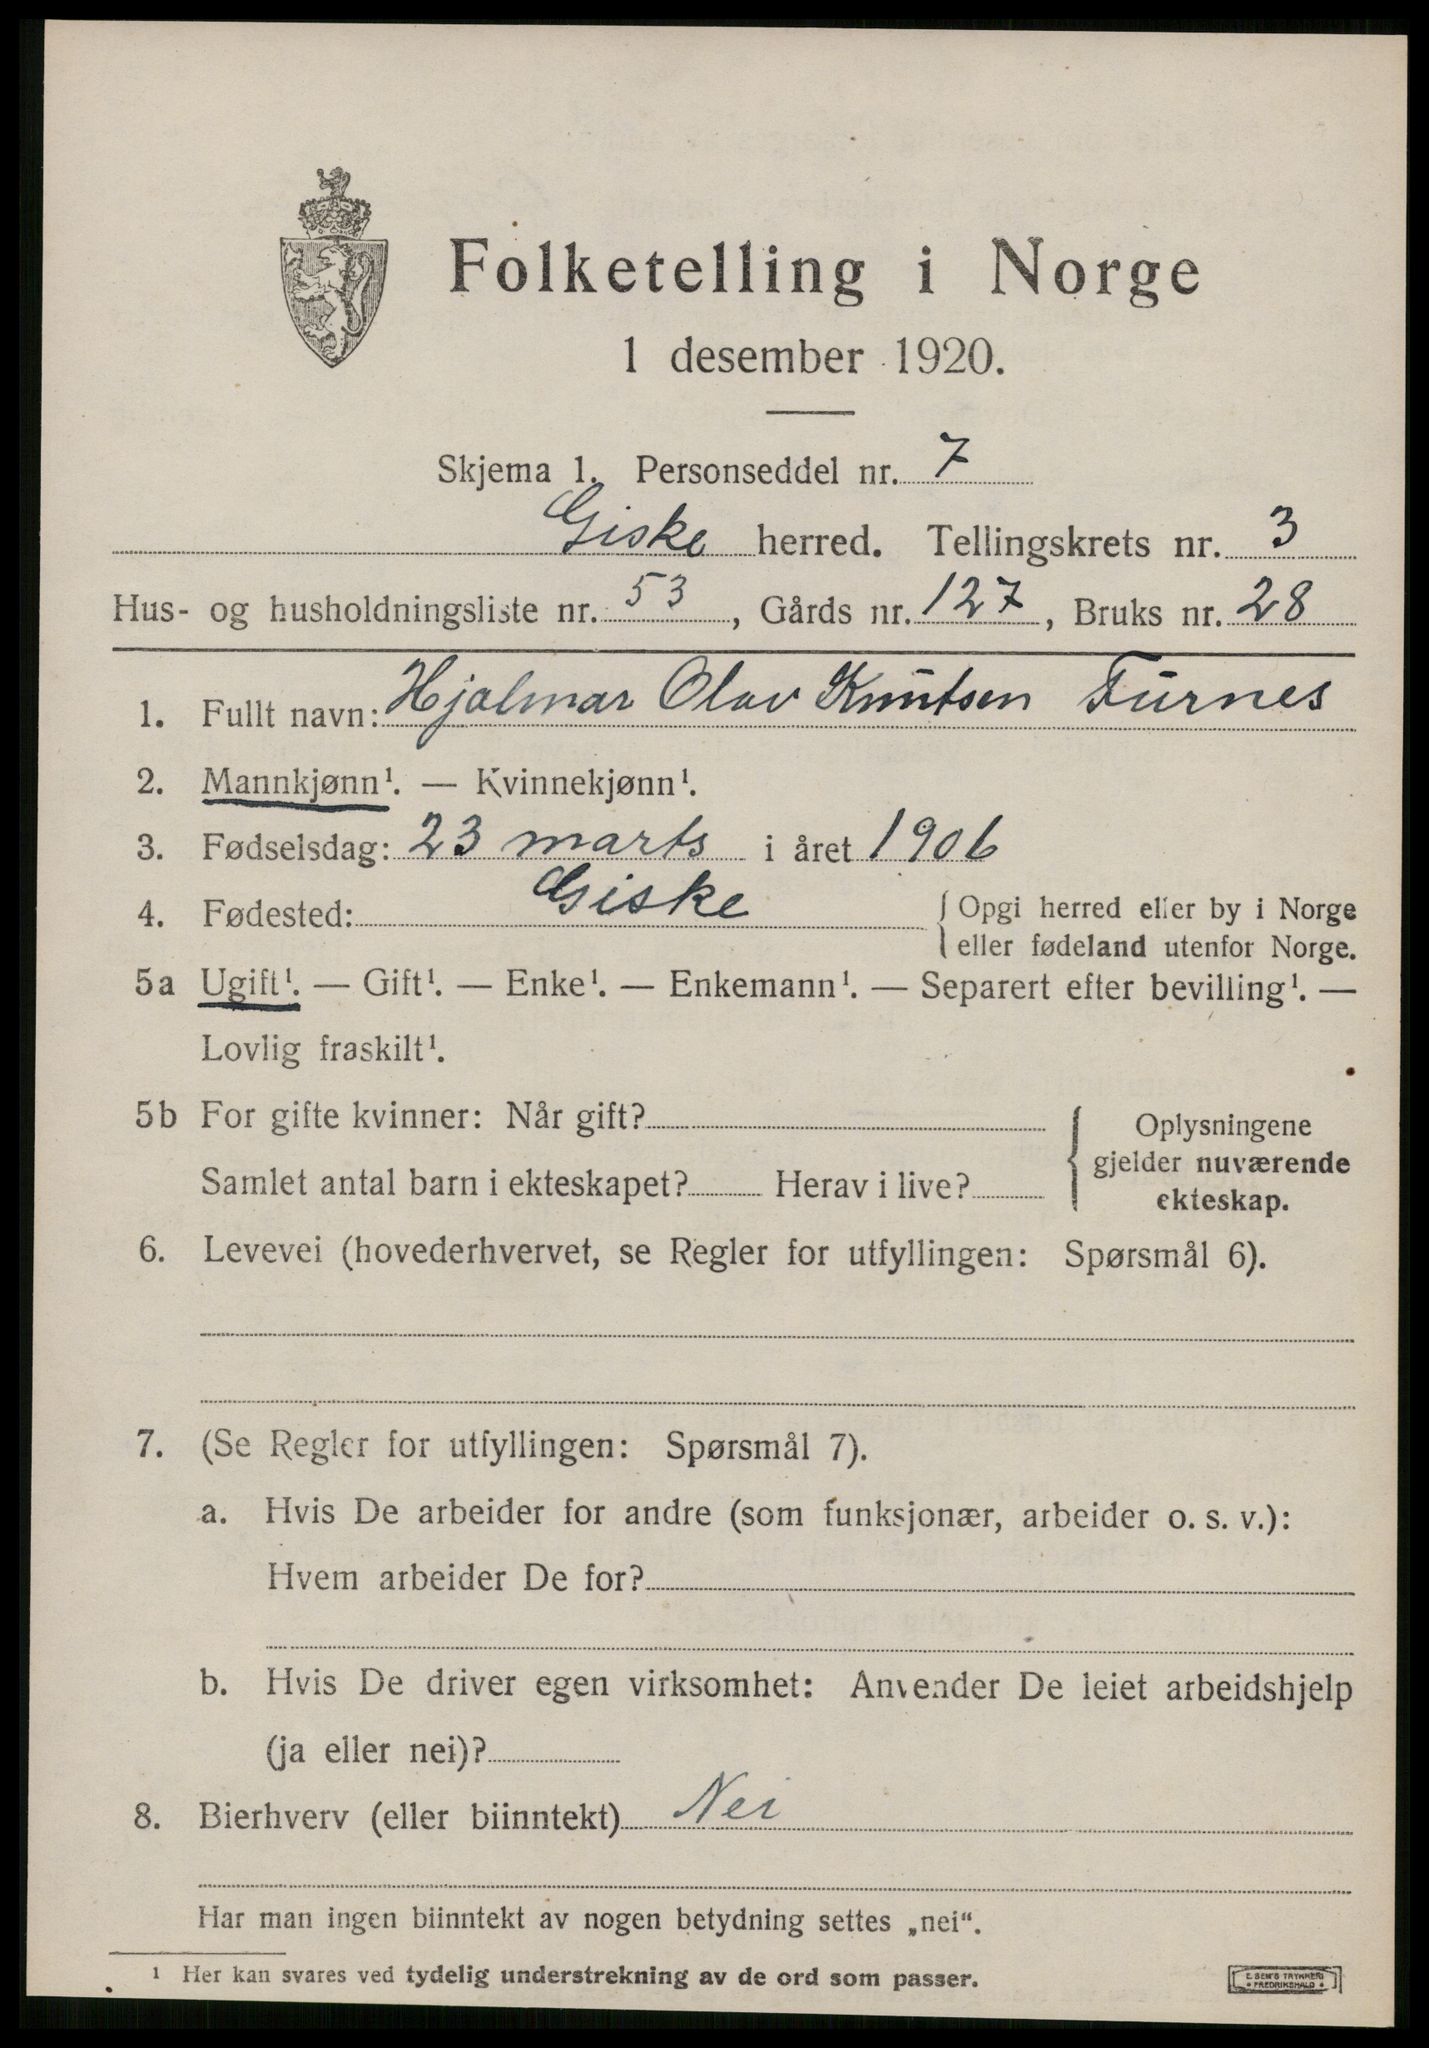 Folketelling i Norge
1 desember 1920.
Skjema 1. Personseddel nr. 7
Giske herred. Tellingskrets nr. 3
Hus- og husholdningsliste nr. 53, Gårds nr. 127, Bruks nr. 28
1. Fullt navn: Hjalmar Olav Knutsen Furnes
2. Mannkjønn¹. — Kvinnekjønn¹.
3. Fødselsdag: 23 marts i året 1906
4. Fødested: Giske {Opgi herred eller by i Norge
eller fødeland utenfor Norge.
5a Ugift¹. — Gift¹. — Enke¹. — Enkemann¹. — Separert efter bevilling¹. —
Lovlig fraskilt¹.
5b For gifte kvinner: Når gift?
Samlet antal barn i ekteskapet? Herav i live?
{ Oplysningene
gjelder nuværende
ekteskap.
6. Levevei (hovederhvervet, se Regler for utfyllingen: Spørsmål 6).
7. (Se Regler for utfyllingen: Spørsmål 7).
a. Hvis De arbeider for andre (som funksjonær, arbeider o. s. v.):
Hvem arbeider De for?
b. Hvis De driver egen virksomhet: Anvender De leiet arbeidshjelp
(ja eller nei)?
8. Bierhverv (eller biinntekt) Nei
Har man ingen biinntekt av nogen betydning settes „nei“.
¹ Her kan svares ved tydelig understrekning av de ord som passer.
E. SEM'S TRYKKERI
• FREDRIKSHALD •